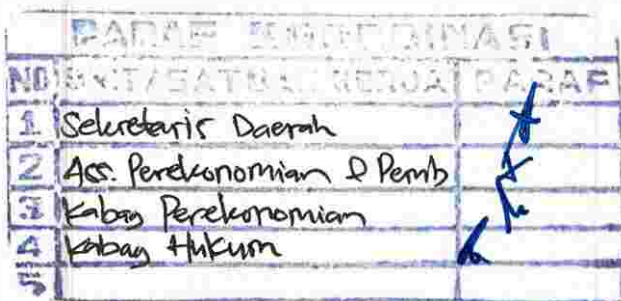 PARAF KOORDINASI
NO UNIT/SATUAN KERJA PARAF
1 Sekretaris Daerah
2 Ass. Perekonomian & Pemb
3 Kabag Perekonomian
4 Kabag Hukum
5